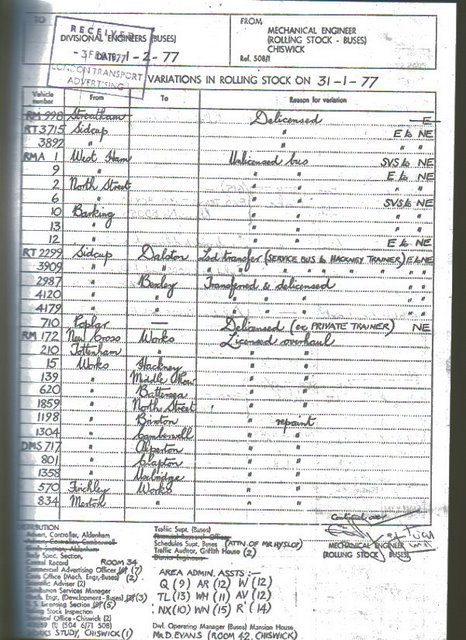 TO
DIVISIONAL ENGINEERS (BUSES)
FROM
MECHANICAL ENGINEER
(ROLLING STOCK - BUSES)
CHISWICK
Ref. 508/1
RECEIVED
DATE 1-2-77
LONDON TRANSPORT
ADVERTISING
VARIATIONS IN ROLLING STOCK ON 31-1-77
Vehicle number From To Reason for variation
RM 298 Streatham Delicensed E
RT 3715 Sidcup " E to NE
3892 " " " "
RMA 1 West Ham Unlicensed bus SVS to NE
9 " " " E to NE
2 North Street " " " "
6 " " " SVS to NE
10 Barking " " " "
13 " " " " "
12 " " " E to NE
RT 2299 Sidcup Dalston Lcd transfer (SERVICE BUS to HACKNEY TRAINER) E to NE
3909 " " " " " " " " "
2987 " Bexley Transferred & delicensed " "
4120 " " " " " "
4179 " " " " " "
710 Poplar — Delicensed (ex PRIVATE TRAINER) NE
RM 172 New Cross Works Licensed overhaul
210 Tottenham " " "
15 Works Hackney " "
139 " Middle Row " "
620 " Battersea " "
1859 " North Street " "
1198 " Brixton " repaint
1304 " Camberwell " "
DMS 717 " Alperton " "
801 " Clapton " "
1358 " Uxbridge " "
570 Finchley Works " "
834 Merton " " "
DISTRIBUTION
Advert. Controller, Aldenham
Body Spec. Section,
Central Record ROOM 34
Commercial Advertising Officer (7)
Costs Office (Mech. Engr, Buses) (2)
Scientific Adviser (2)
Distribution Services Manager
Mech. Engr. (Development - Buses) (3)
B.S. Licensing Section (5)
Rolling Stock Inspection
Technical Office - Chiswick (2)
WORKS STUDY, CHISWICK (1)
Traffic Supt. (Buses)
Schedules Supt. (Buses) (ATTN. OF MR HYSLOP)
Traffic Auditor, Griffith House (2)
AREA ADMIN. ASSTS :-
Q (9) AR (12) W (12)
TL (13) WH (11) AV (12)
NX (10) WN (15) R (14)
Dwl. Operating Manager (Buses) Mansion House
Mr. D. EVANS (ROOM 42. CHISWICK)
MECHANICAL ENGINEER
(ROLLING STOCK - BUSES)